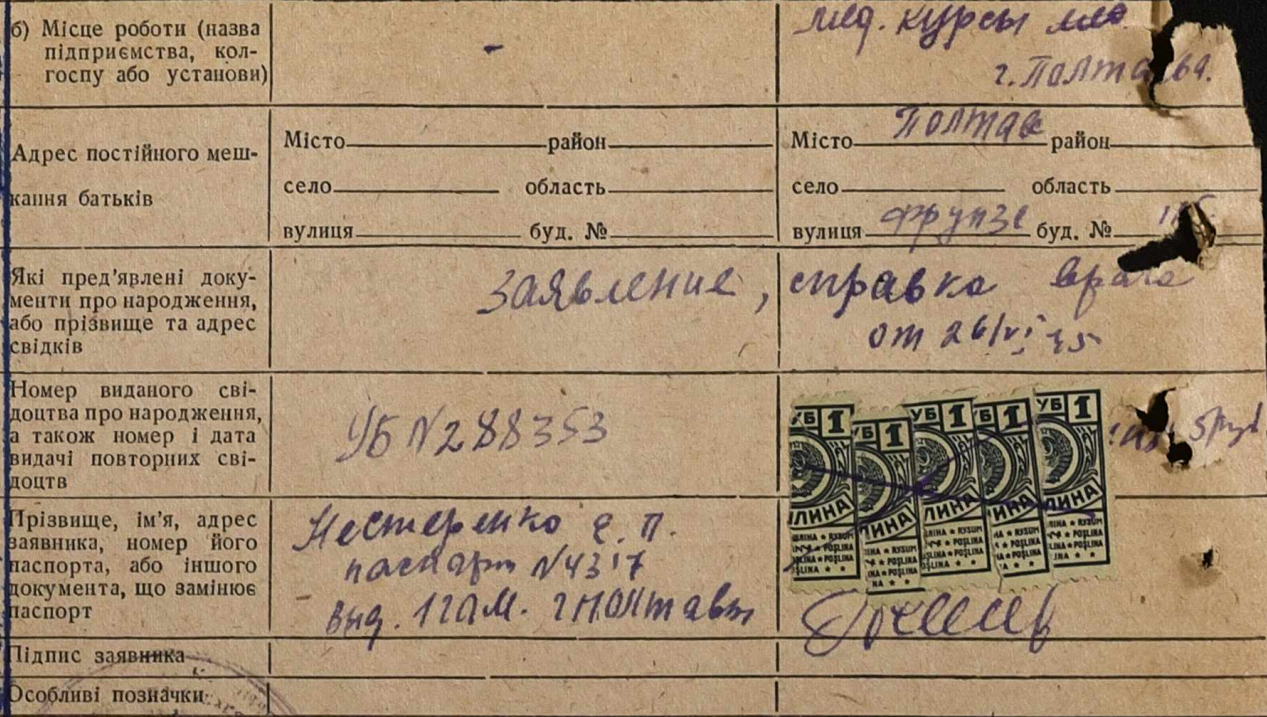 б) Місце роботи (назва
підприємства, кол-
госпу або установи)
-
мед. курсы
г. Полтава.
Адрес постійного меш-
кання батьків
Місто район
село область
вулиця буд. №
Місто Полтава район
село область
вулиця Фрунзе буд. №
Які пред'явлені доку-
менти про народження,
або прізвище та адрес
свідків
заявление, справка врача
от 26/VI 45
Номер виданого сві-
доцтва про народження,
а також номер і дата
видачі повторних сві-
доцтв
УБ N288353
УБ 1 УБ 1 УБ 1 УБ 1 УБ 1
ЛИНА ЛИНА ЛИНА ЛИНА ЛИНА
5 руб
Прізвище, ім'я, адрес
заявника, номер його
паспорта, або іншого
документа, що замінює
паспорт
Нестеренко Е. П.
паспорт N4317
выд. 1 го м. г Полтавы
Підпис заявника
Особливі позначки